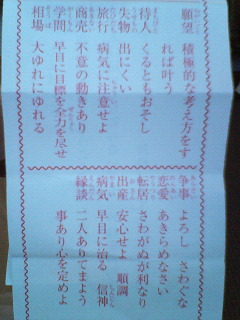 願望 積極的な考え方をす
れば叶う
待人 くるともおそし
失物 出にくい
旅行 病気に注意せよ
商売 不意の動きあり
学問 早目に目標を全力を尽せ
相場 大ゆれにゆれる
争事 よろし さわぐな
恋愛 あきらめなさい
転居 さわがぬが利なり
出産 安心せよ 順調
病気 早目に治る 信神
縁談 二人ありてまよう
事あり心を定めよ